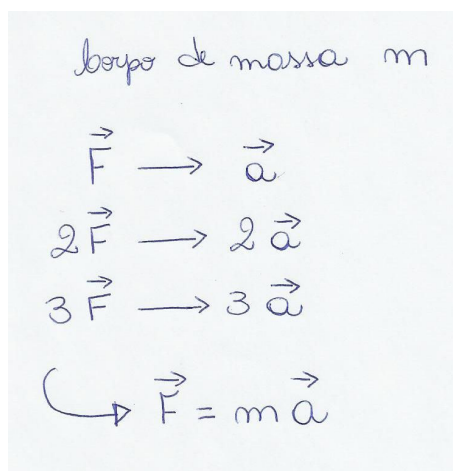 Corpo de massa m
F⃗ → a⃗
2F⃗ → 2a⃗
3F⃗ → 3a⃗
↳ F⃗ = m a⃗